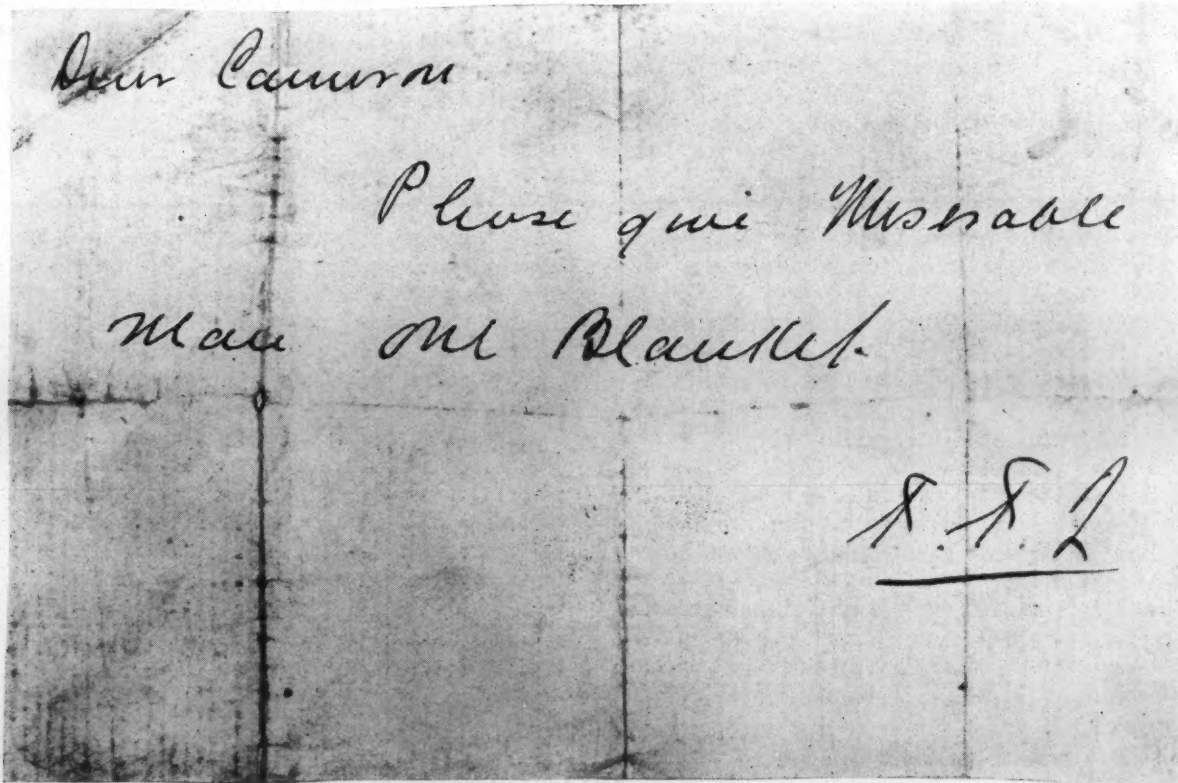 Dear Cameron
Please give Miserable
Man one Blanket.